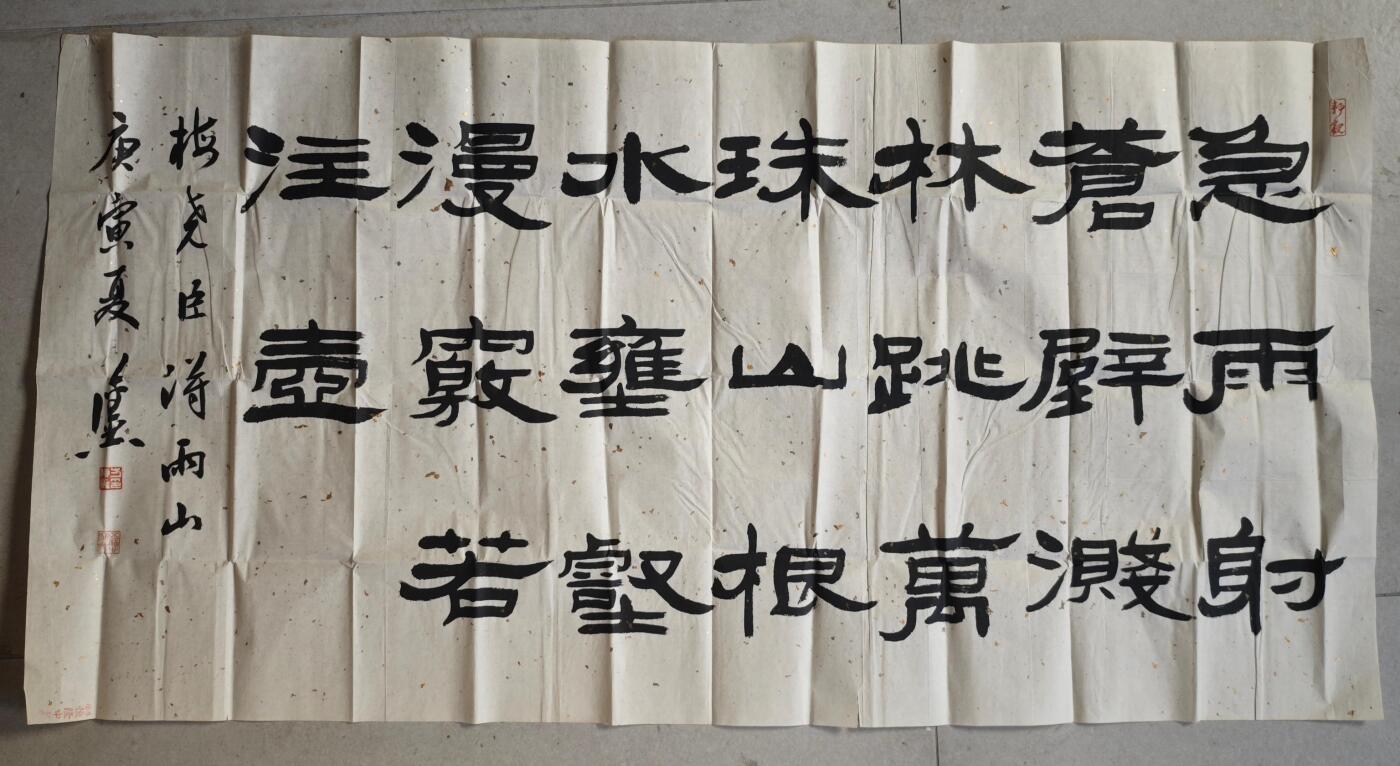 急雨射
蒼壁濺
林跳萬
珠山根
水壅壑
漫竅若
注壺
梅尧臣 雨山
庚寅夏